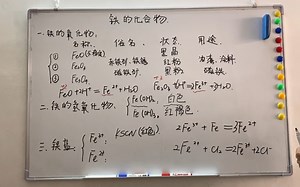 铁的化合物
一.铁的氧化物:
名称 俗名 状态 用途
① FeO 黑晶
② Fe₂O₃ 赤铁矿,铁锈 红粉 油漆,涂料
③ Fe₃O₄ 磁铁矿 黑晶 磁铁
FeO+2H⁺=Fe²⁺+H₂O Fe₂O₃+6H⁺=2Fe³⁺+3H₂O
二.铁的氢氧化物: Fe(OH)₂ 白色
Fe(OH)₃ 红褐色
三.铁盐: Fe³⁺: KSCN(红色) 2Fe³⁺+Fe=3Fe²⁺
Fe²⁺: 2Fe²⁺+Cl₂=2Fe³⁺+2Cl⁻